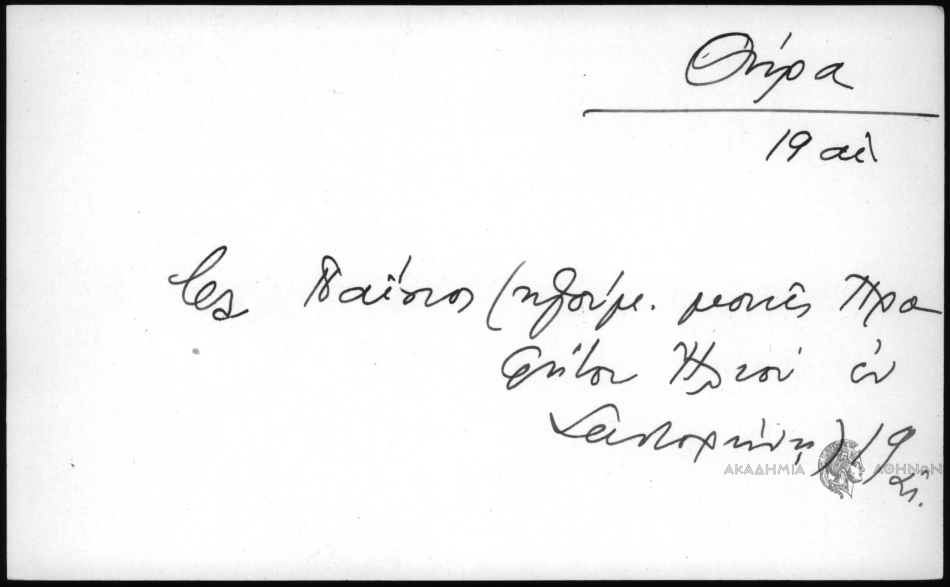 Θήρα
19 αι
Παΐσιος (ηγούμ. μονής Προ
φήτου Ηλιού ἐν
Σαντορήνη) 19
αι.
ΑΚΑΔΗΜΙΑ ΑΘΗΝΩΝ